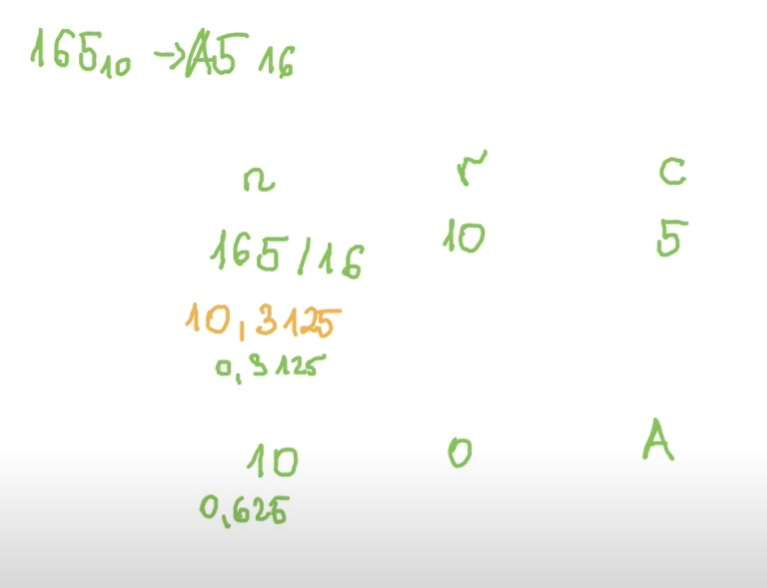 165₁₀ → A5 16
n r C
165/16 10 5
10,3125
0,3125
10 0 A
0,625